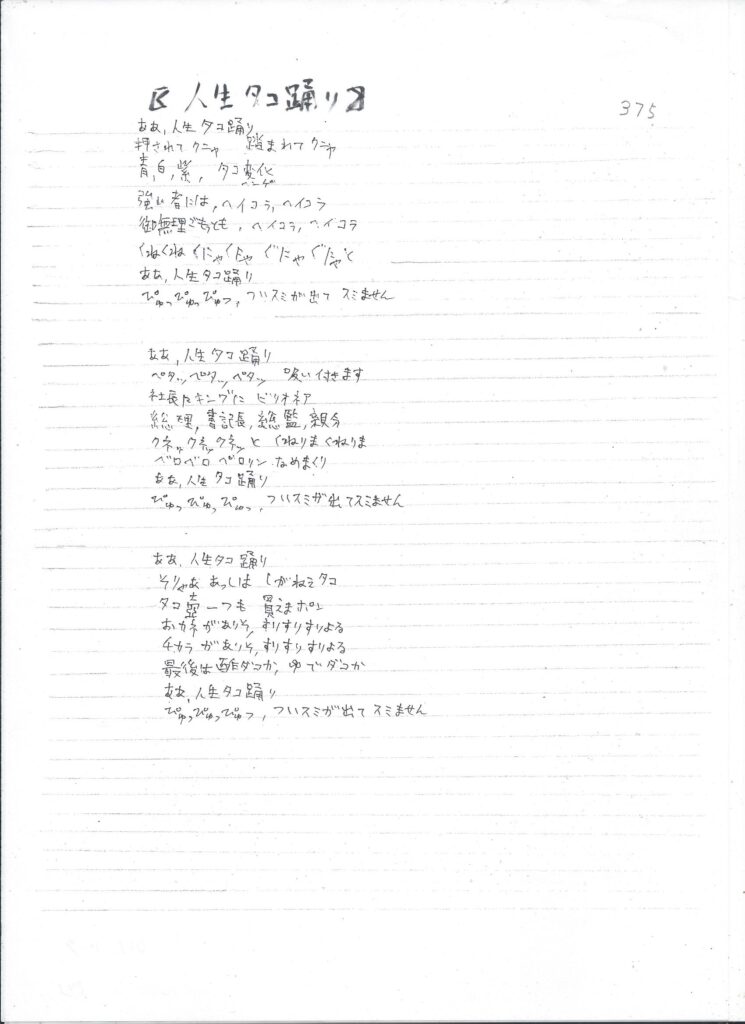 【人生タコ踊り】
375
ああ,人生タコ踊り
押されてクニャ 踏まれてクニャ
青,白,紫,タコ変化
ヘンゲ
強い者には,ヘイコラ,ヘイコラ
御無理ごもっとも,ヘイコラ,ヘイコラ
くねくね くにゃくにゃ ぐにゃぐにゃと
ああ,人生タコ踊り
ぴゅっぴゅっぴゅっ,ついスミが出てスミません
ああ,人生タコ踊り
ペタッ,ペタッ,ペタッ 吸い付きます
社長にキングに ビリオネア
総理,書記長,総監,親分
クネックネックネッと くねりまくねりま
ベロベロ ベロリン なめまくり
ああ,人生タコ踊り
ぴゅっぴゅっぴゅっ,ついスミが出てスミません
ああ,人生タコ踊り
そりゃああっしは しがねえタコ
タコ壺一つも 買えまポン
おカネがありそ,すりすりすりよる
チカラがありそ,すりすりすりよる
最後は酢ダコか,ゆでダコか
ああ,人生タコ踊り
ぴゅっぴゅっぴゅっ,ついスミが出てスミません